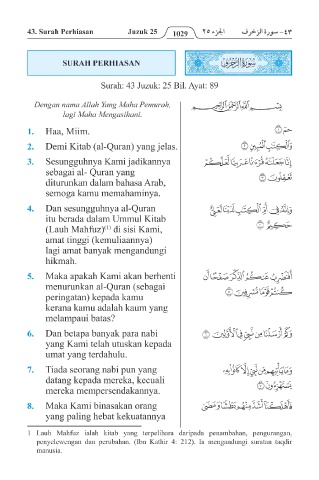 43. Surah Perhiasan Juzuk 25 1029 ٤٣– سورة الزخرف الجزء ٢٥
SURAH PERHIASAN سُورَةُ الزُّخْرُفِ
Surah: 43 Juzuk: 25 Bil. Ayat: 89
Dengan nama Allah Yang Maha Pemurah,
lagi Maha Mengasihani.
بِسْمِ ٱللَّهِ ٱلرَّحْمَٰنِ ٱلرَّحِيمِ
1. Haa, Miim.
حمٓ ١
2. Demi Kitab (al-Quran) yang jelas.
وَٱلْكِتَٰبِ ٱلْمُبِينِ ٢
3. Sesungguhnya Kami jadikannya
sebagai al- Quran yang
diturunkan dalam bahasa Arab,
semoga kamu memahaminya.
إِنَّا جَعَلْنَٰهُ قُرْءَٰنًا عَرَبِيًّا لَّعَلَّكُمْ
تَعْقِلُونَ ٣
4. Dan sesungguhnya al-Quran
itu berada dalam Ummul Kitab
(Lauh Mahfuz)(1) di sisi Kami,
amat tinggi (kemuliaannya)
lagi amat banyak mengandungi
hikmah.
وَإِنَّهُۥ فِىٓ أُمِّ ٱلْكِتَٰبِ لَدَيْنَا لَعَلِىٌّ
حَكِيمٌ ٤
5. Maka apakah Kami akan berhenti
menurunkan al-Quran (sebagai
peringatan) kepada kamu
kerana kamu adalah kaum yang
melampaui batas?
أَفَنَضْرِبُ عَنكُمُ ٱلذِّكْرَ صَفْحًا أَن
كُنتُمْ قَوْمًا مُّسْرِفِينَ ٥
6. Dan betapa banyak para nabi
yang Kami telah utuskan kepada
umat yang terdahulu.
وَكَمْ أَرْسَلْنَا مِن نَّبِىٍّ فِى ٱلْأَوَّلِينَ ٦
7. Tiada seorang nabi pun yang
datang kepada mereka, kecuali
mereka mempersendakannya.
وَمَا يَأْتِيهِم مِّن نَّبِىٍّ إِلَّا كَانُوا۟ بِهِۦ
يَسْتَهْزِءُونَ ٧
8. Maka Kami binasakan orang
yang paling hebat kekuatannya
فَأَهْلَكْنَآ أَشَدَّ مِنْهُم بَطْشًا وَمَضَىٰ
1 Lauh Mahfuz ialah kitab yang terpelihara daripada penambahan, pengurangan,
penyelewengan dan perubahan. (Ibn Kathir 4: 212). Ia mengandungi suratan taqdir
manusia.